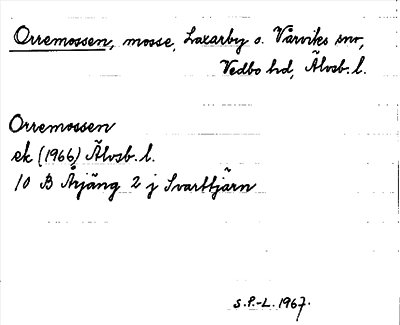 Orremossen, mosse, Laxarby o. Vårviks snr,
Vedbo hd, Älvsb. l.
Orremossen
ek (1966) Älvsb. l.
10 B Årjäng 2 j Svarttjärn
S.P.-L. 1967.